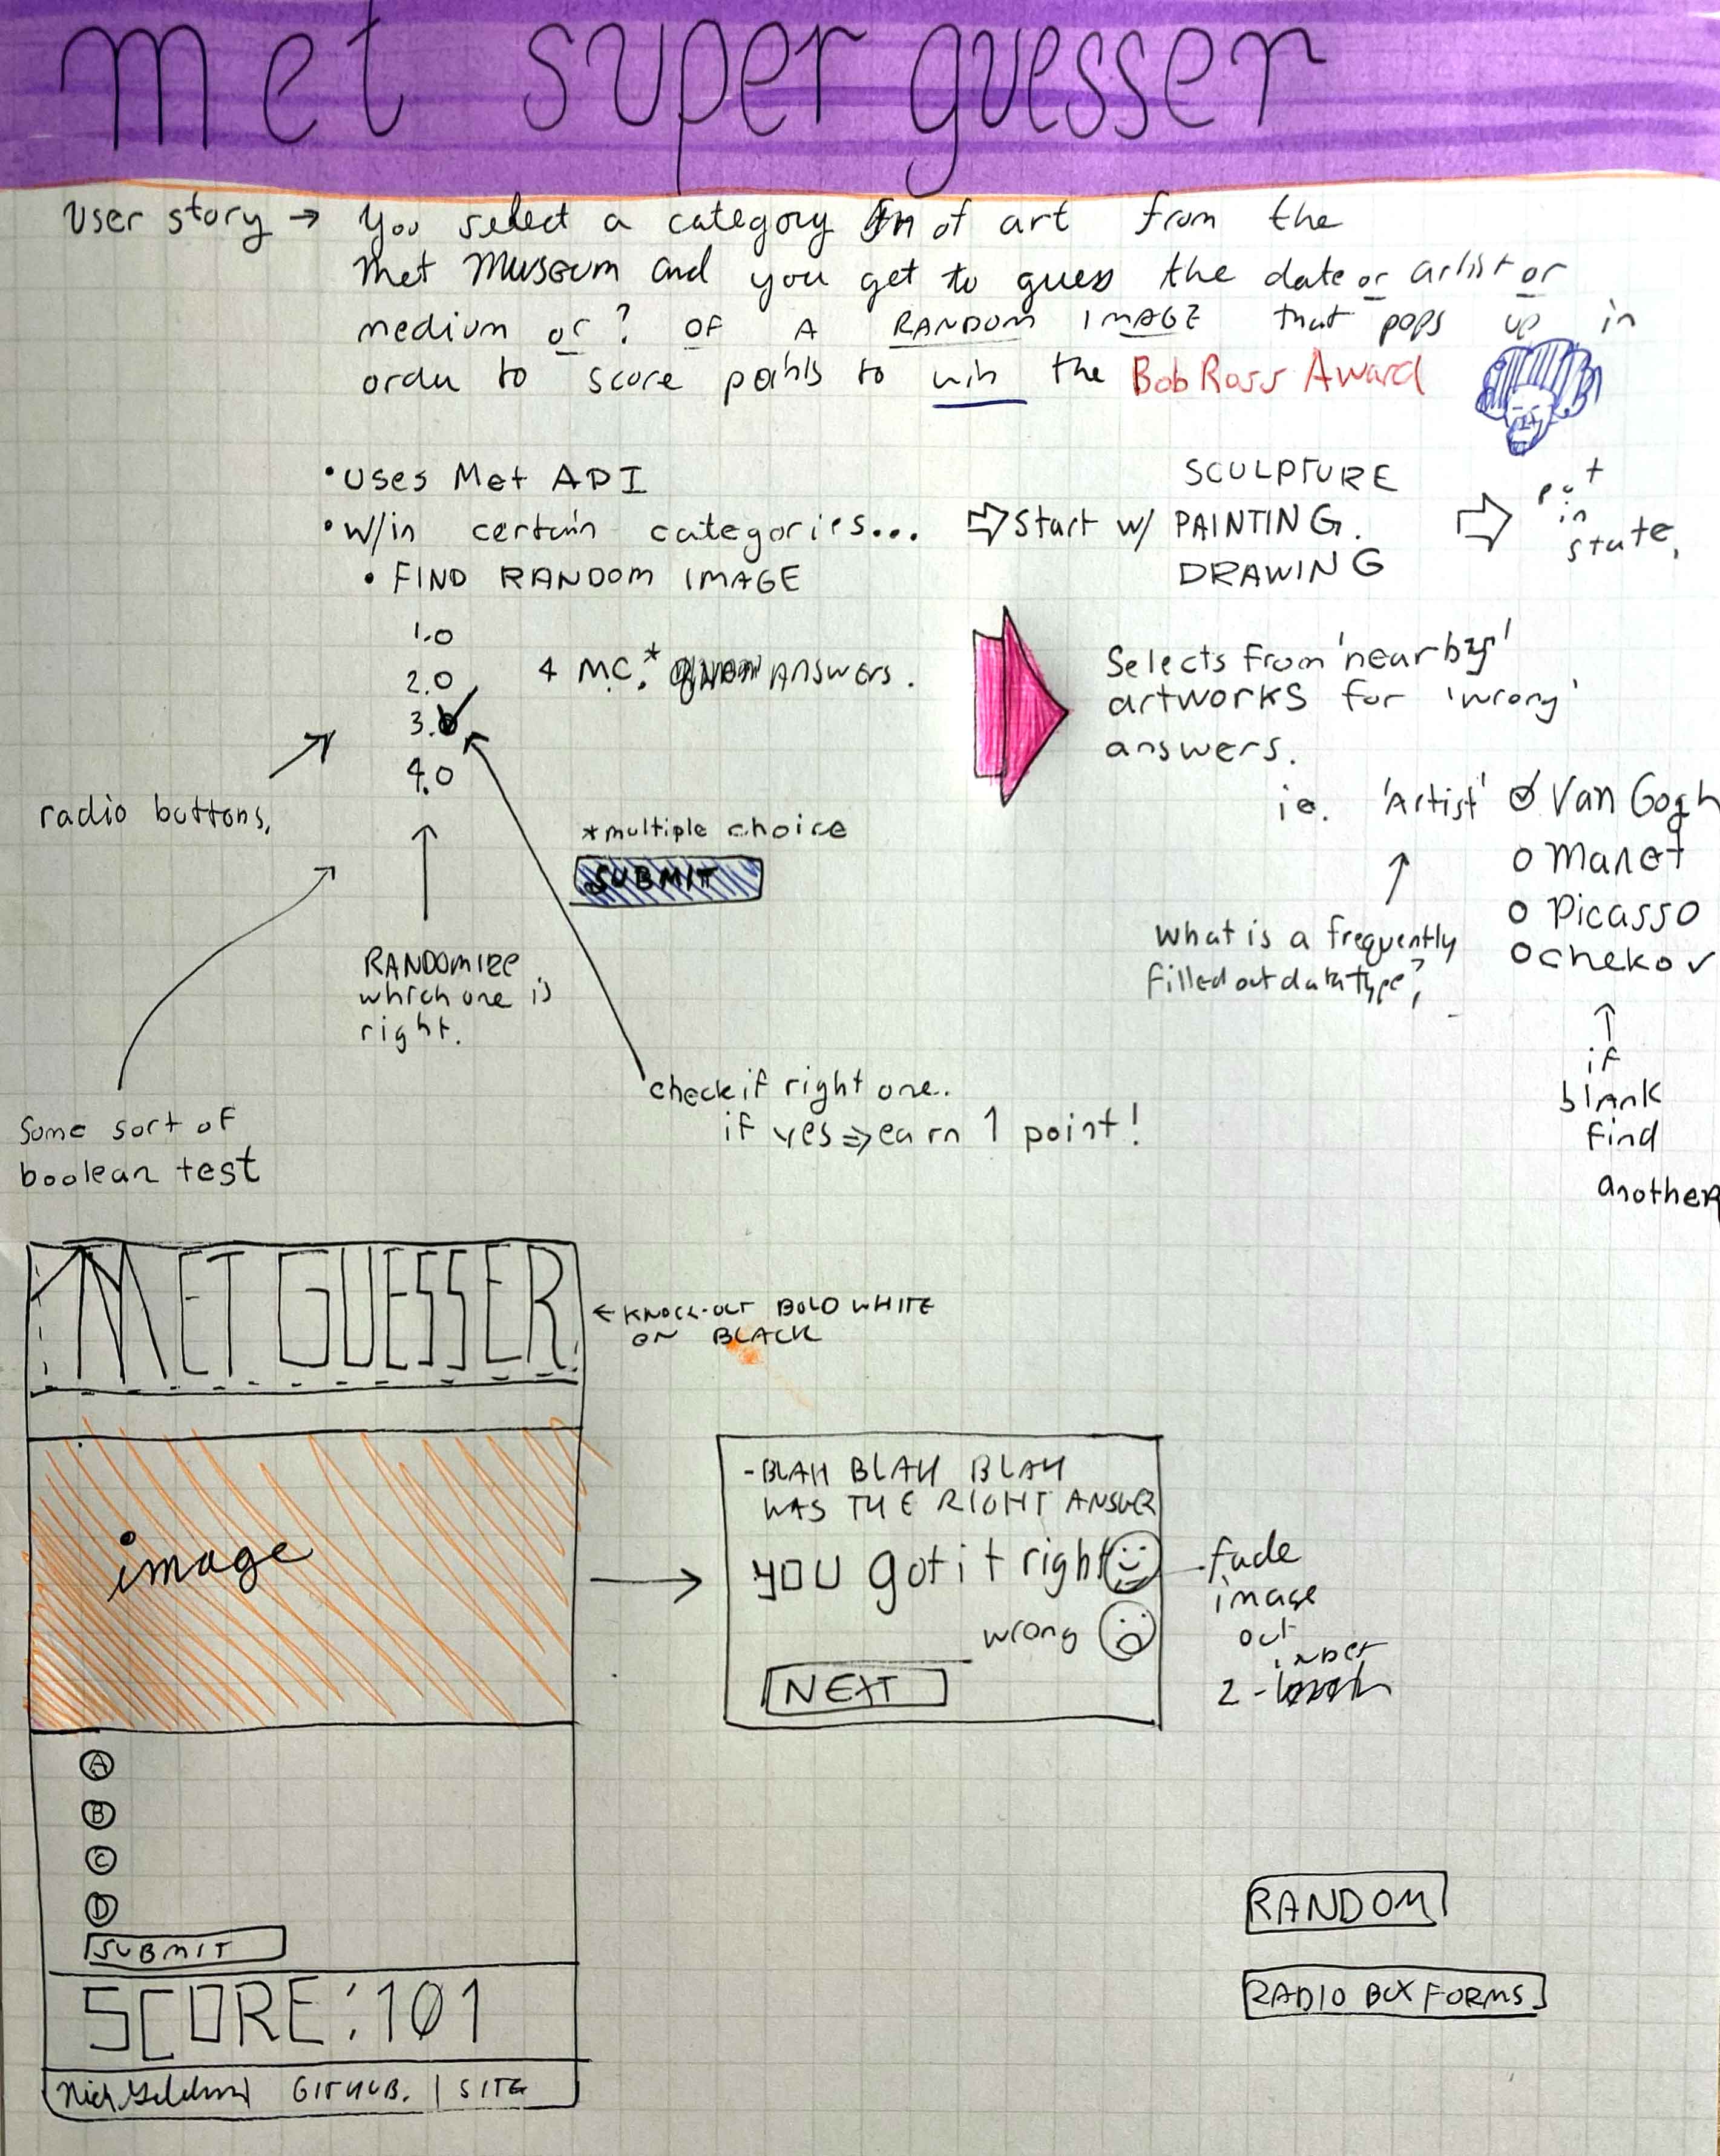 met super guesser
User story → You select a category of art from the
Met MUSEUM and you get to guess the date or artist or
medium or ? OF A RANDOM IMAGE that pops up in
order to score points to win the Bob Ross Award
•Uses Met API
•W/in certain categories...
• FIND RANDOM IMAGE
⇨ Start w/
SCULPTURE
PAINTING.
DRAWING
⇨ put
in
state,
1.o
2.o
3.o
4.o
4 M.C.* ANSWERS.
*multiple choice
SUBMIT
radio buttons,
RANDOMIZE
which one is
right.
Some sort of
boolean test
check if right one..
if yes ⇒ earn 1 point!
Selects from 'nearby'
artworks for 'wrong'
answers.
ie. 'Artist' Van Gogh
o Manet
o Picasso
o chekov
What is a frequently
filled out data type?
↑
if
blank
find
another
MET GUESSER
← KNOCK-OUT BOLD WHITE
ON BLACK
image
Ⓐ
Ⓑ
Ⓒ
Ⓓ
SUBMIT
SCORE:101
GITHUB. | SITE
-BLAH BLAH BLAH
WAS THE RIGHT ANSWER
you got it right
wrong
NEXT
fade
image
out
index
z-
RANDOM
RADIO BOX FORMS